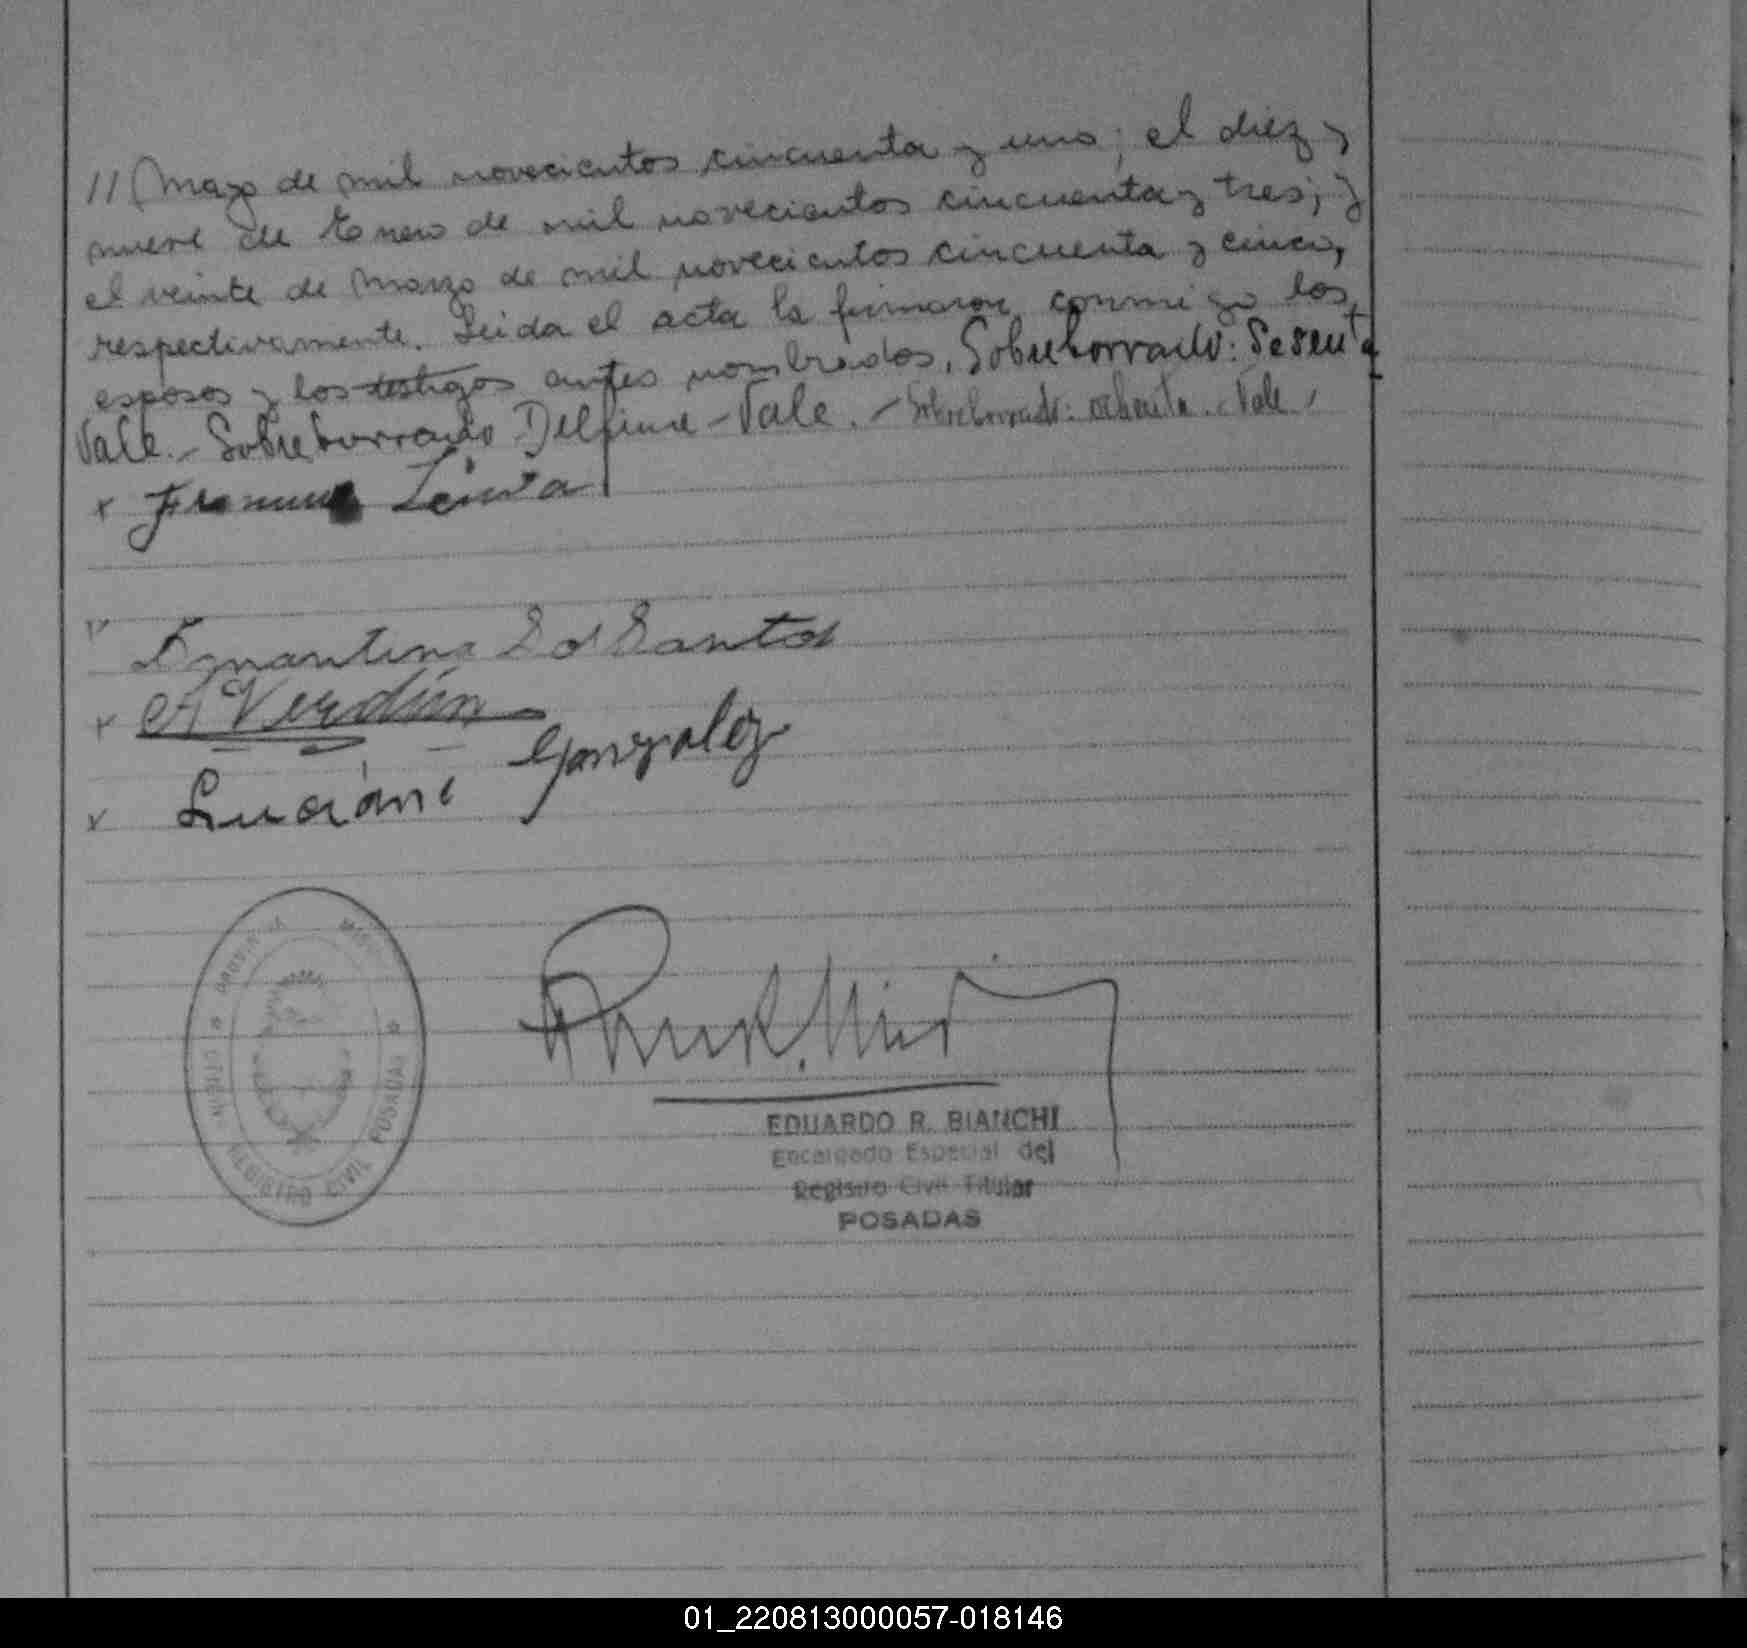 // Mayo de mil novecientos cincuenta y uno; el diez y
nueve de Enero de mil novecientos cincuenta y tres; y
el veinte de Marzo de mil novecientos cincuenta y cinco,
respectivamente. Leida el acta la firmaron conmigo los
esposos y los testigos antes nombrados. Sobreborrado: Sesenta
Vale.- Sobreborrado Delfina - Vale. - Sobreborrado: ochenta. Vale
x Leiva
Dos Santos
x A Verdún
x Luciano Gonzalez
PROVINCIA
OFICINA REGISTRO CIVIL POSADAS
EDUARDO R. BIANCHI
Encargado Especial del
Registro Civil Titular
POSADAS
01_220813000057-018146